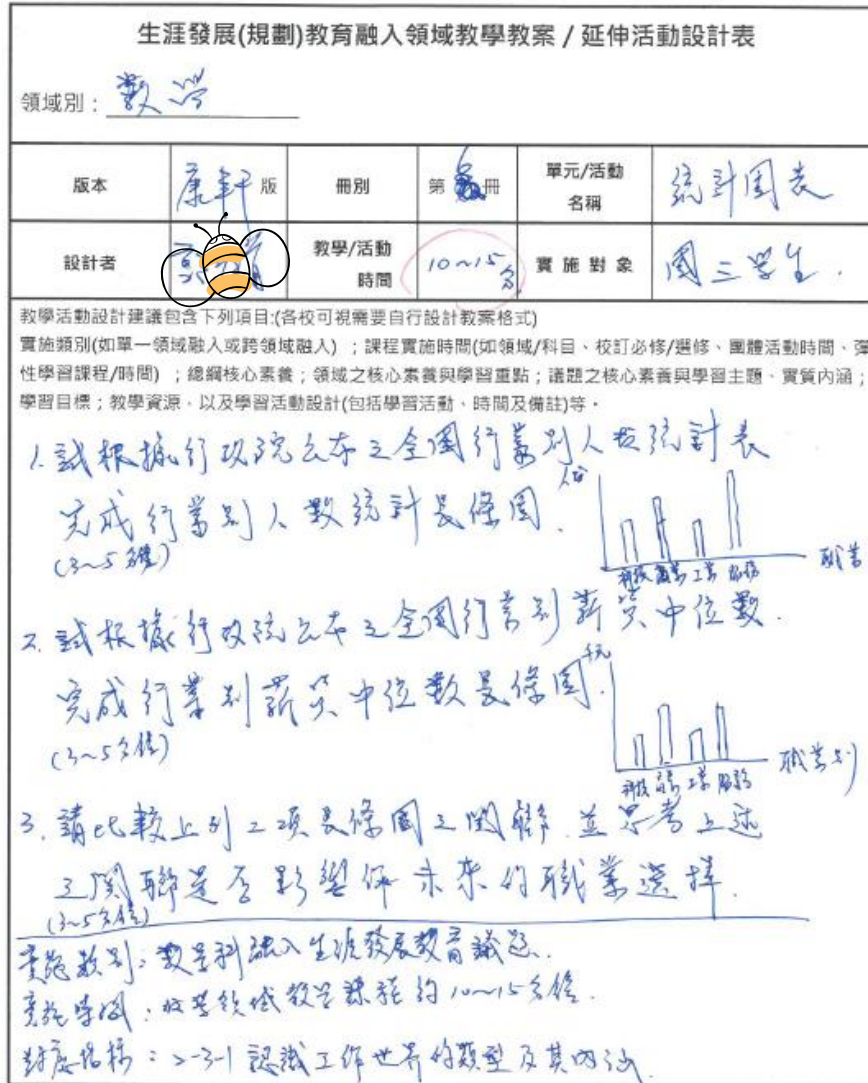 生涯發展(規劃)教育融入領域教學教案 / 延伸活動設計表
領域別：數學
版本 康軒版 冊別 第 冊 單元/活動名稱 統計圖表
設計者 教學/活動時間 10~15分 實施對象 國三學生.
教學活動設計建議包含下列項目:(各校可視需要自行設計教案格式)
實施類別(如單一領域融入或跨領域融入) ；課程實施時間(如領域/科目、校訂必修/選修、團體活動時間、彈
性學習課程/時間) ；總綱核心素養；領域之核心素養與學習重點；議題之核心素養與學習主題、實質內涵；
學習目標；教學資源、以及學習活動設計(包括學習活動、時間及備註)等。
1. 試根據行政院公布之全國行業別人數統計表
完成行業別人數統計長條圖.
(3~5分鐘)
人數
科技 商業 工業 服務
職業
2. 試根據行政院公布之全國行業別薪資中位數.
完成行業別薪資中位數長條圖.
(3~5分鐘)
千元
科技 商業 工業 服務
職業別
3. 請比較上列二項長條圖之關聯.並思考上述
之關聯是否影響你未來的職業選擇.
(3~5分鐘)
實施類別：數學科融入生涯發展教育議題.
實施時間：數學領域教學課程約10~15分鐘.
對應指標：2-3-1 認識工作世界的類型及其內涵.